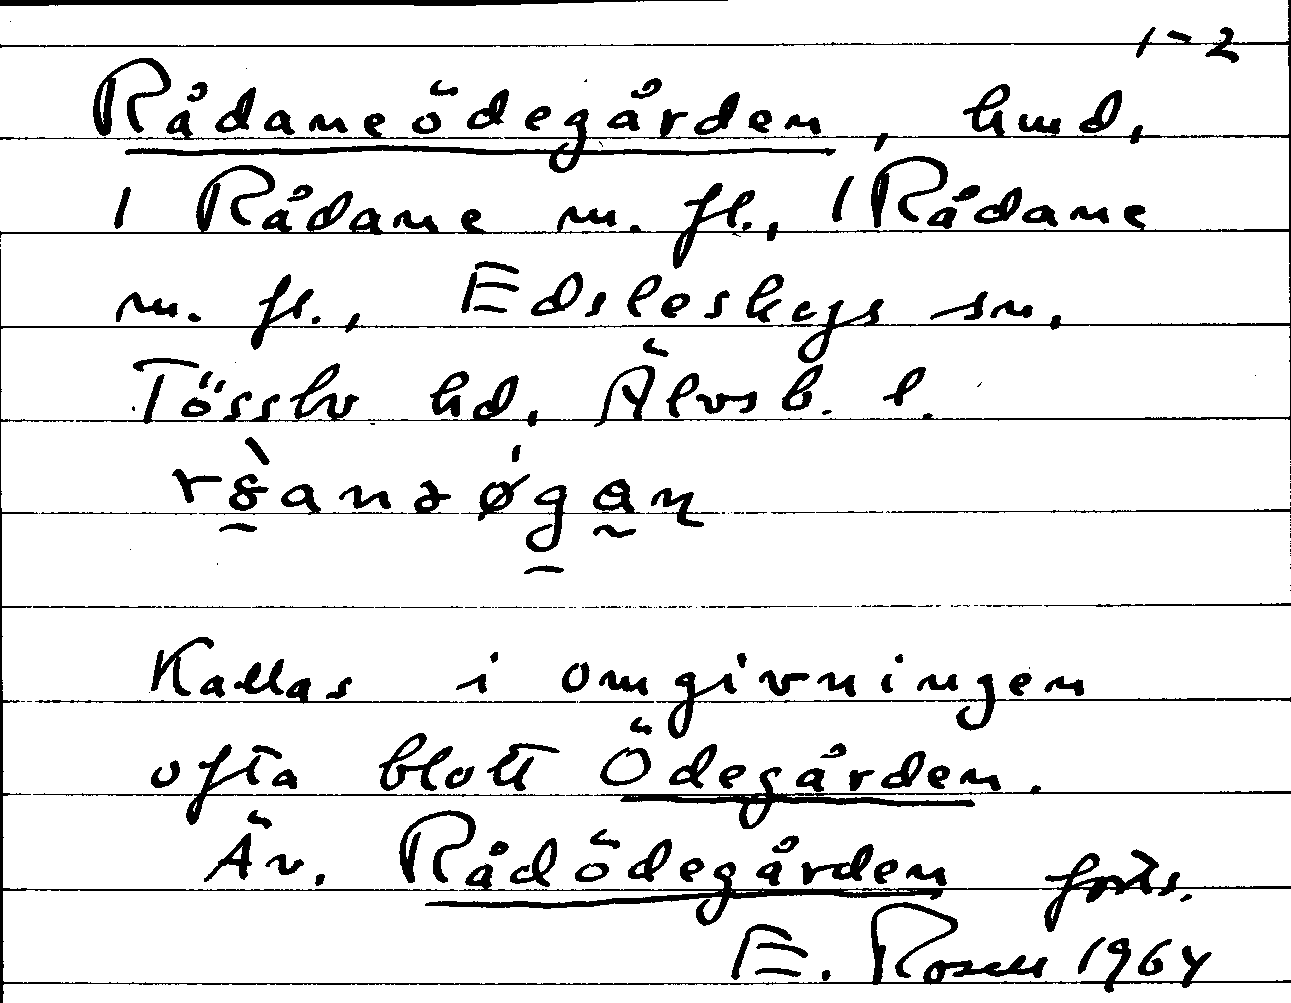 1-2
Rådaneödegården, hmd,
1 Rådane m. fl., 1 Rådane
m. fl., Edsleskogs sn.
Tössbo hd, Älvsb. l.
Kallas i omgivningen
ofta blott Ödegården.
Äv. Rådödegården forts.
E. Rosell 1964